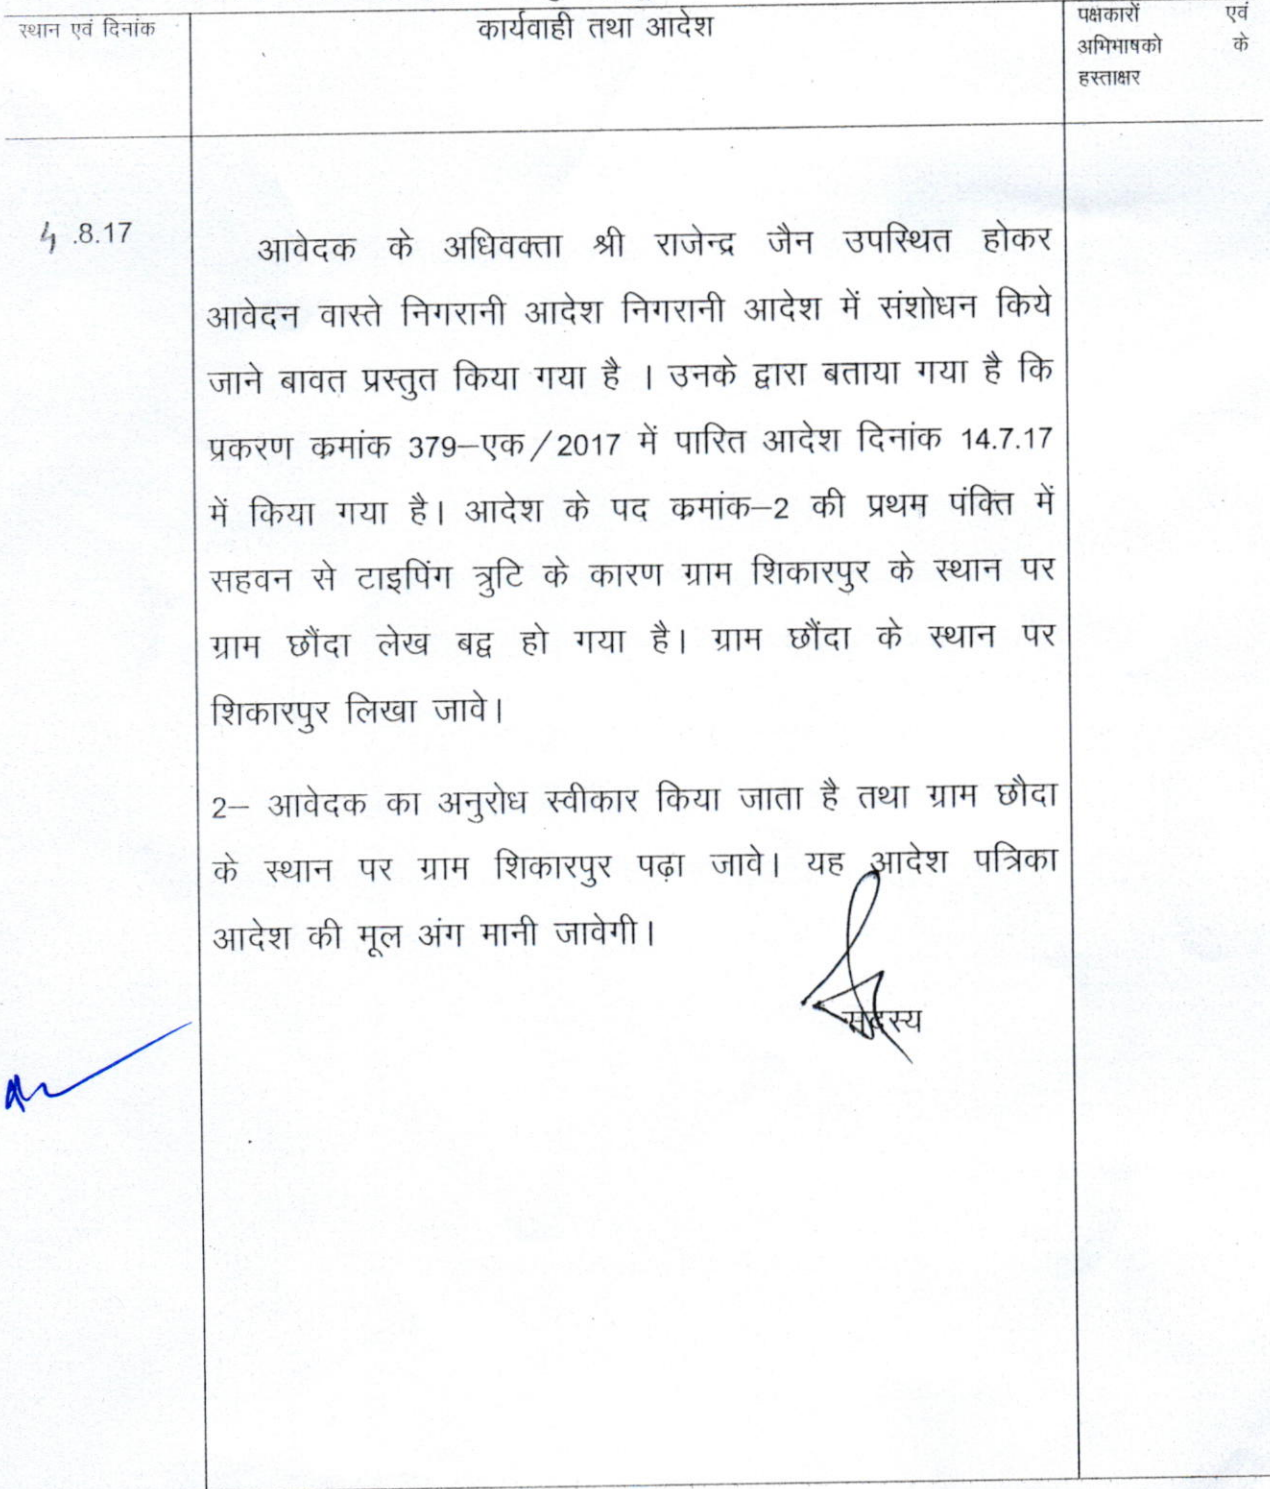 स्थान एवं दिनांक
कार्यवाही तथा आदेश
पक्षकारों एवं
अभिभाषको के
हस्ताक्षर
4.8.17
आवेदक के अधिवक्ता श्री राजेन्द्र जैन उपस्थित होकर
आवेदन वास्ते निगरानी आदेश निगरानी आदेश में संशोधन किये
जाने बावत प्रस्तुत किया गया है । उनके द्वारा बताया गया है कि
प्रकरण कमांक 379–एक/2017 में पारित आदेश दिनांक 14.7.17
में किया गया है। आदेश के पद कमांक–2 की प्रथम पंक्ति में
सहवन से टाइपिंग त्रुटि के कारण ग्राम शिकारपुर के स्थान पर
ग्राम छौंदा लेख बद्व हो गया है। ग्राम छौंदा के स्थान पर
शिकारपुर लिखा जावे।
2– आवेदक का अनुरोध स्वीकार किया जाता है तथा ग्राम छौदा
के स्थान पर ग्राम शिकारपुर पढ़ा जावे। यह आदेश पत्रिका
आदेश की मूल अंग मानी जावेगी।
सदस्य